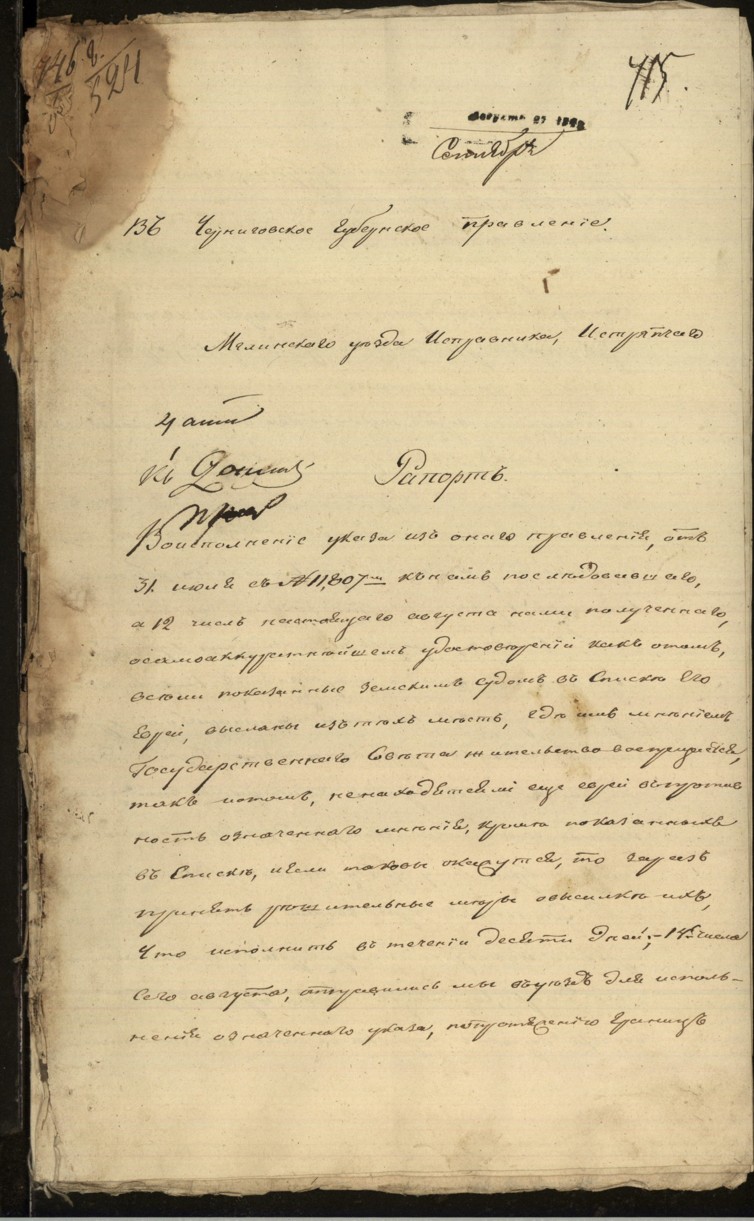 415.
324
августа 27
Сентября
Въ Черниговское Губернское правленіе.
Мглинскаго уезда Исправника, Истряпчаго
Рапортъ.
Воисполненіе указа изъ онаго правленія, отъ
31. июля съ № 11,807мъ къ намъ последовавшаго,
а 12 числъ настоящаго августа нами полученнаго,
осамоаккуратнѣйшемъ удостоверѣніи какъ отомъ,
всели показанные земскимъ судомъ въ Спискѣ Его
Евреи, высланы изътехъ местъ, гдѣ имъ мнѣніемъ
Государственнаго Совѣта жительство воспрещается,
такъ ипотомъ, ненаходятсяли еще евреи въпротив
ность означеннаго мнѣнія, кромѣ показанныхъ
въ Спискѣ, иесли таковы окажутся, то
принять решительные меры овысилкѣ ихъ,
что исполнить въ теченіи десяти дней; 14. числа
Сего августа, отправились мы въуездъ для исполь-
ненія означеннаго указа, границъ